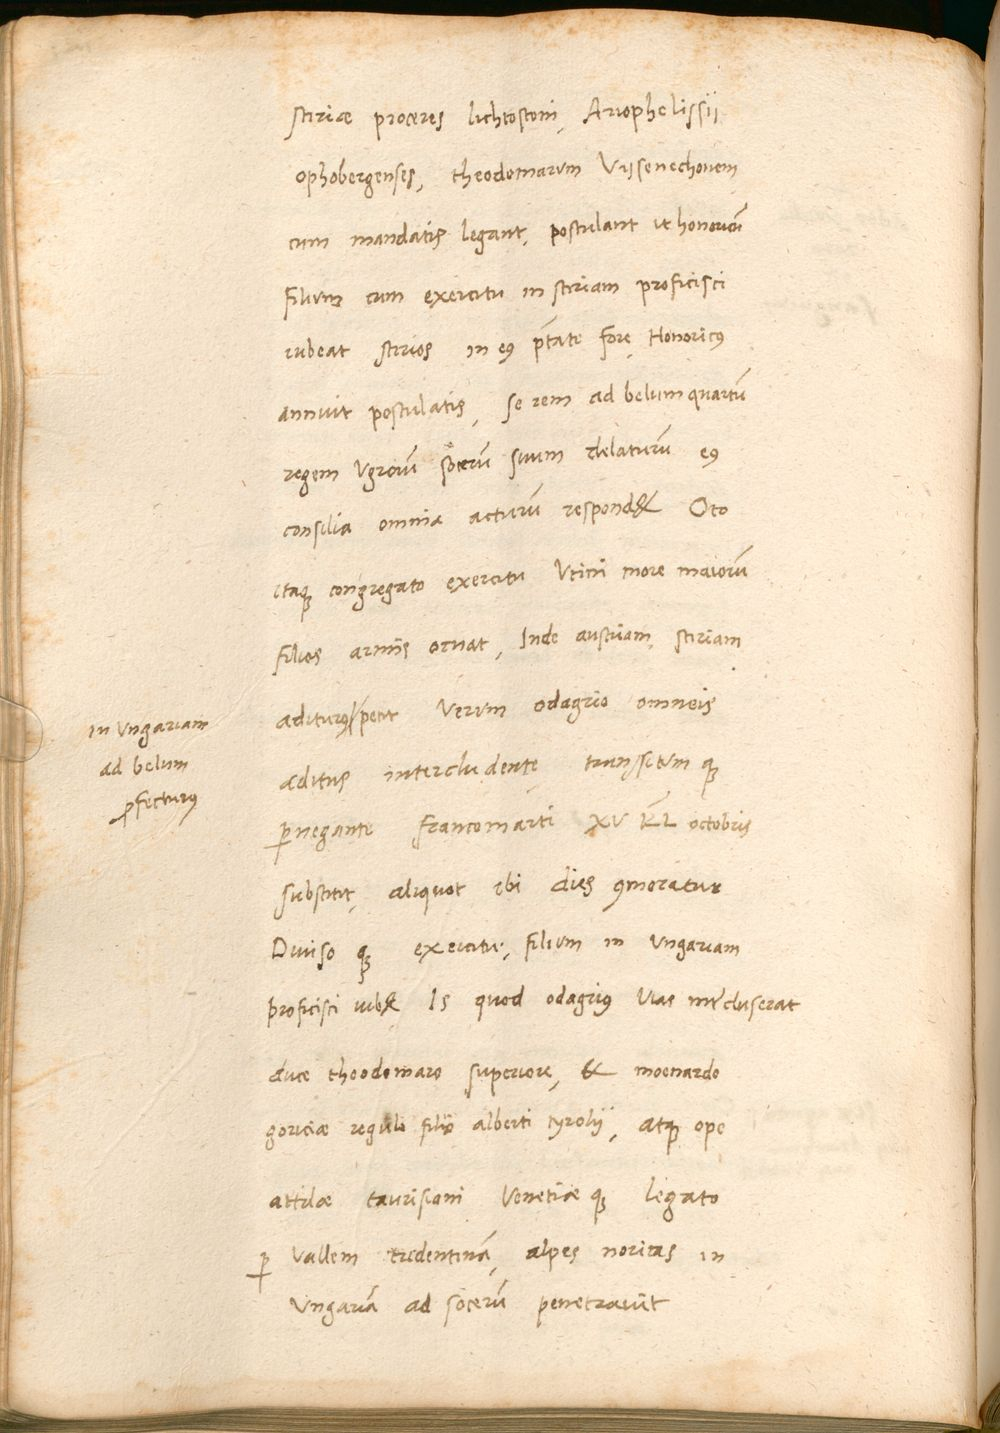 stiriæ proceres lichtostoni, Ariophelissii
ophobergenses, theodomarum Vrisenechouem
cum mandatis legant, postulant ut honoricū
filium cum exercitu in stiriam proficisci
iubeat stirios in eꝰ ptāte fore, Honoricꝰ
annuit postulatis, se rem ad belum quartū
regem Vgrorū socerū suum delaturū eꝰ
consilia omnia acturū respond& Oto
itaqꝫ congregato exercitu Vtini more maiorū
filios armis ornat, Inde austriam, stiriam
aditurꝰ petit Verum odagrio omneis
aditus intercludente, transitumqꝫ
ꝑnegante francomarti XV KL octobris
substitit, aliquot ibi dies ꝯmoratur
Diuisoqꝫ exercitu, filium in Vngariam
proficisci iub& Is quod odagriꝰ Vias int̄cluserat
duce theodomaro superiore, & moenardo
goriciæ reguli filio alberti tyrolij, atqꝫ ope
attilæ taurisiani Venetiæqꝫ legato
ꝑ Vallem tredentinā, alpes noricas in
Vngariā ad socerū penetrauit
in Vngariam
ad belum
ꝓfecturꝰ